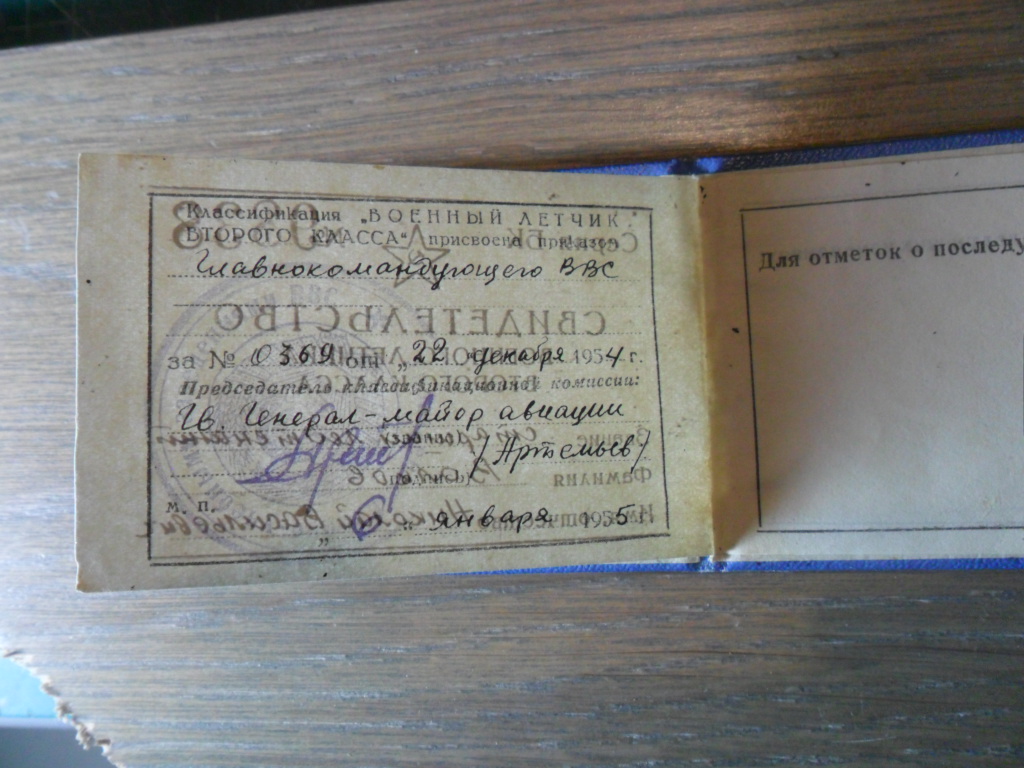 Классификация „ВОЕННЫЙ ЛЕТЧИК
ВТОРОГО КЛАССА" присвоена приказом
Главнокомандующего ВВС
за № 0369 от „22 декабря 1954 г.
Председатель классификационной комиссии:
Гв. Генерал-майор авиации
/Артемьев/
М. П.
„ 6 " января 1955
Для отметок о последу
СВИДЕТЕЛЬСТВО
Фамилия
Николай Васильевич